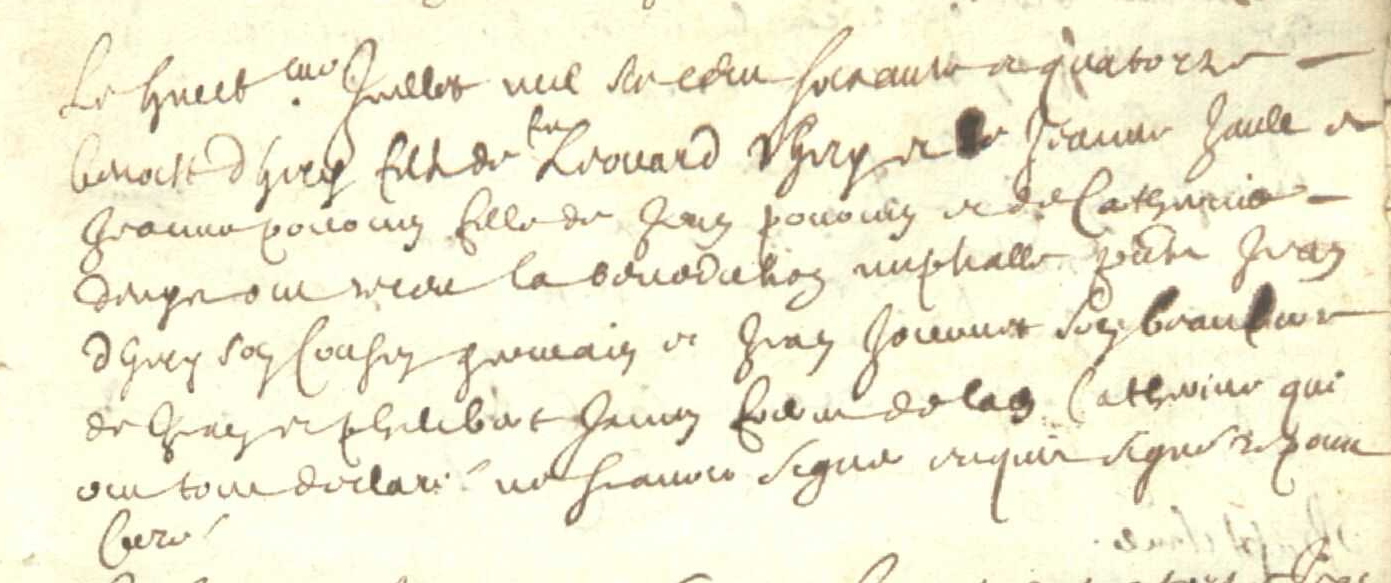 Le huict me Juillet mil six cens soixante et quatorze
benoist dhery filz de feu Leonard dhery et de Jeanne Jaule et
Jeanne pouoin fille de Jean pouoin et de Catherine
ont receu la benediction nuptialle Jean
dhery son Cousin germain et Jean Jouonet son beau
de et philibert Jamin de lad Catherine qui
ont tous declaré ne scavoir signer enquis
Curé